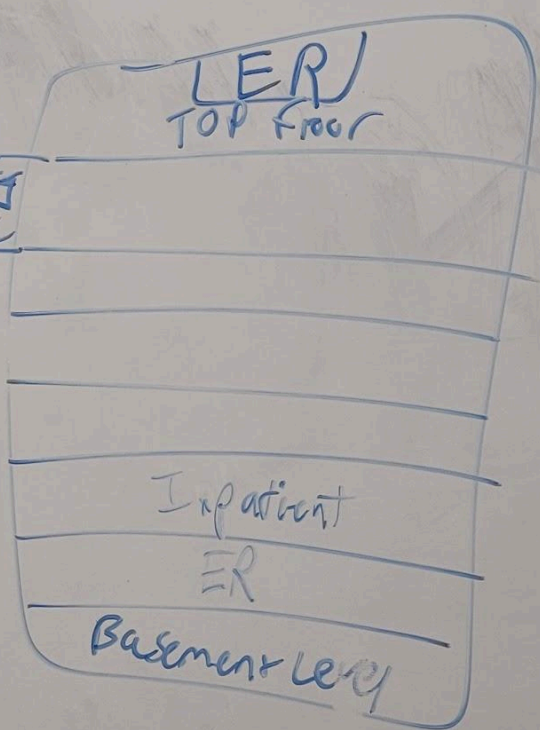 [ER]
TOP Floor
Inpatient
ER
Basement Level